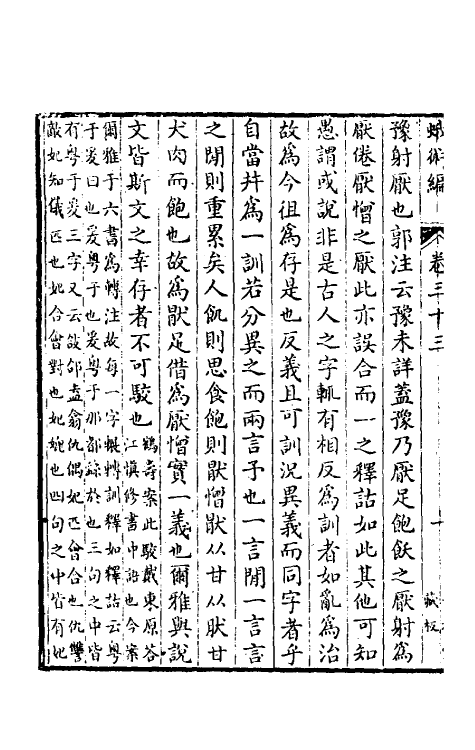 蛾術編 卷三十三
豫射厭也郭注云豫未詳蓋豫乃厭足飽飫之厭射為
厭倦厭憎之厭此亦誤合而一之釋詁如此其他可知
愚謂或說非是古人之字輒有相反為訓者如亂為治
故為今徂為存是也反義且可訓況異義而同字者乎
自當并為一訓若分異之而兩言予也一言閒一言言
之閒則重累矣人飢則思食飽則猒憎猒从甘从肰甘
犬肉而飽也故為猒足借為厭憎實一義也爾雅與說
文皆斯文之幸存者不可駮也
鶴壽案此駮戴東原答
江慎修書中語也今案
爾雅于六書為轉注故每一字輾轉訓釋如釋詁云粵
于爰曰也爰粵于也爰粵于那都繇於也三句之中皆
有粵于爰三字又云敆郃盍翕仇偶妃匹會合也仇讐
敵妃知儀匹也妃合會對也妃媲也四句之中皆有妃
藏板